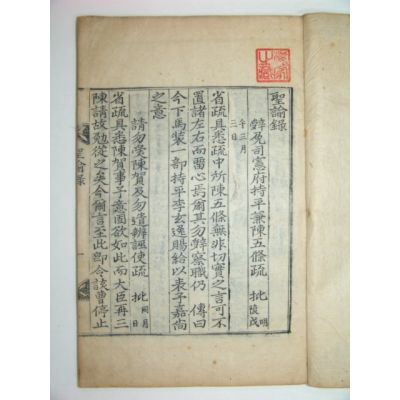 聖諭錄
辭免司憲府持平兼陳五條疏 批 明陵戊
午三月
三日
省疏具悉疏中所陳五條無非切實之言可不
置諸左右而留心焉爾其勿辭察職仍 傳曰
今下馬裝一部持平李玄逸賜給以表予嘉尚
之意
請勿受陳賀及勿遣辨誣使疏 批 同月日
省疏具悉陳賀事予意固欲如此而大臣再三
陳請故勉從之矣今爾言至此卽令該曹停止
聖諭錄